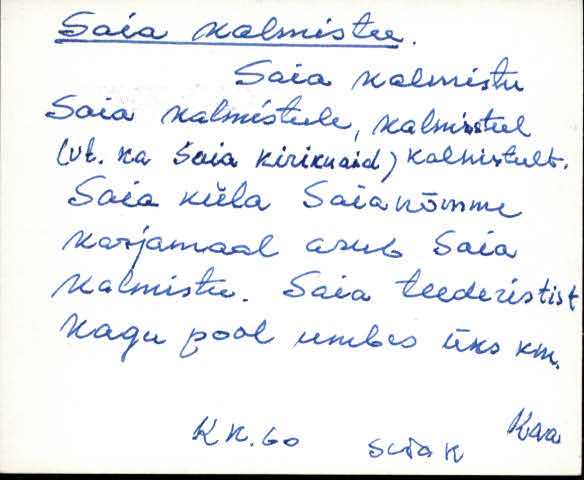 Saia kalmistu.
Saia kalmistu
Saia kalmistule, kalmistul
(vt. ka Saia kirikuaid) kalmistult.
Saia küla Saianõmme
karjamaal asub Saia
kalmistu. Saia teederistist
kagu pool umbes üks km.
KK.60
Kaa